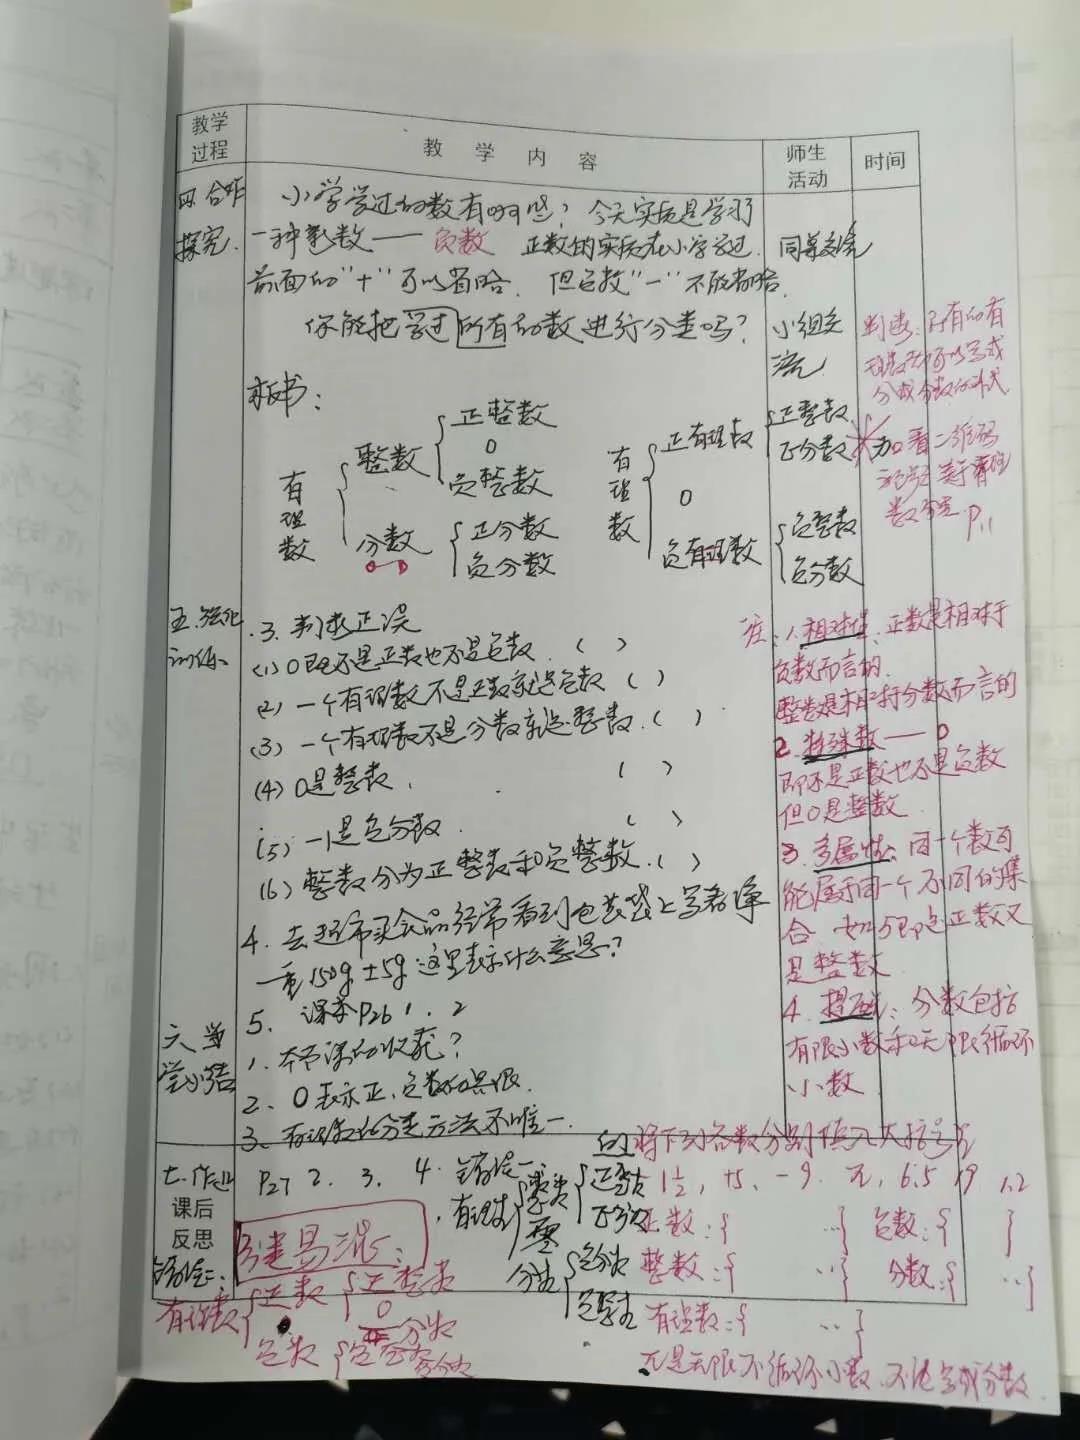 教学过程
教 学 内 容
师生活动
时间
四.合作探究.
小学学过的数有哪些？今天实质是学习
一种新数——负数 正数的实质在小学学过.
前面的“+”可以省略. 但负数“-”不能省略.
你能把学过所有的数进行分类吗？
同幕交流
小组交流
板书：
有理数
整数
正整数
0
负整数
分数
正分数
负分数
有理数
正有理数
正整数
正分数
0
负有理数
负整数
负分数
判断：所有的有
理数都可以写成
分数的形式
看二维码
P11
五.强化训练
3.判断正误
(1) 0既不是正数也不是负数. ( )
(2) 一个有理数不是正数就是负数 ( )
(3) 一个有理数不是分数就是整数. ( )
(4) 0是整数. ( )
(5) -1是负分数. ( )
(6) 整数分为正整数和负整数. ( )
4. 去超市买食品经常看到包装袋上写着净
重150g ±5g 这里表示什么意思？
5. 课本P26 1. 2
注：1.相对性：正数是相对于
负数而言的.
整数是相对于分数而言的
2.特殊数——0
即不是正数也不是负数
但0是整数.
3.多属性：同一个数可
能属于同一个不同的集
合 如5即是正数又
是整数
4. 提醒：分数包括
有限小数和无限循环
小数.
六.当堂小结
1.本节课的收获？
2. 0表示正、负数的界限.
3. 有理数的分类方法不唯一.
七.作业
P27 2. 3. 4.
课后反思
关键易混：
有理数
整数
正数
0
负数
正整数
分数
的将下列各数分别填入大括号里
1½, +5, -9. π, 6.5 19 1.2
正数：{ …} 负数：{ }
整数：{ …} 分数：{ …}
有理数：{ …}
π是无限不循环小数.不能写成分数.